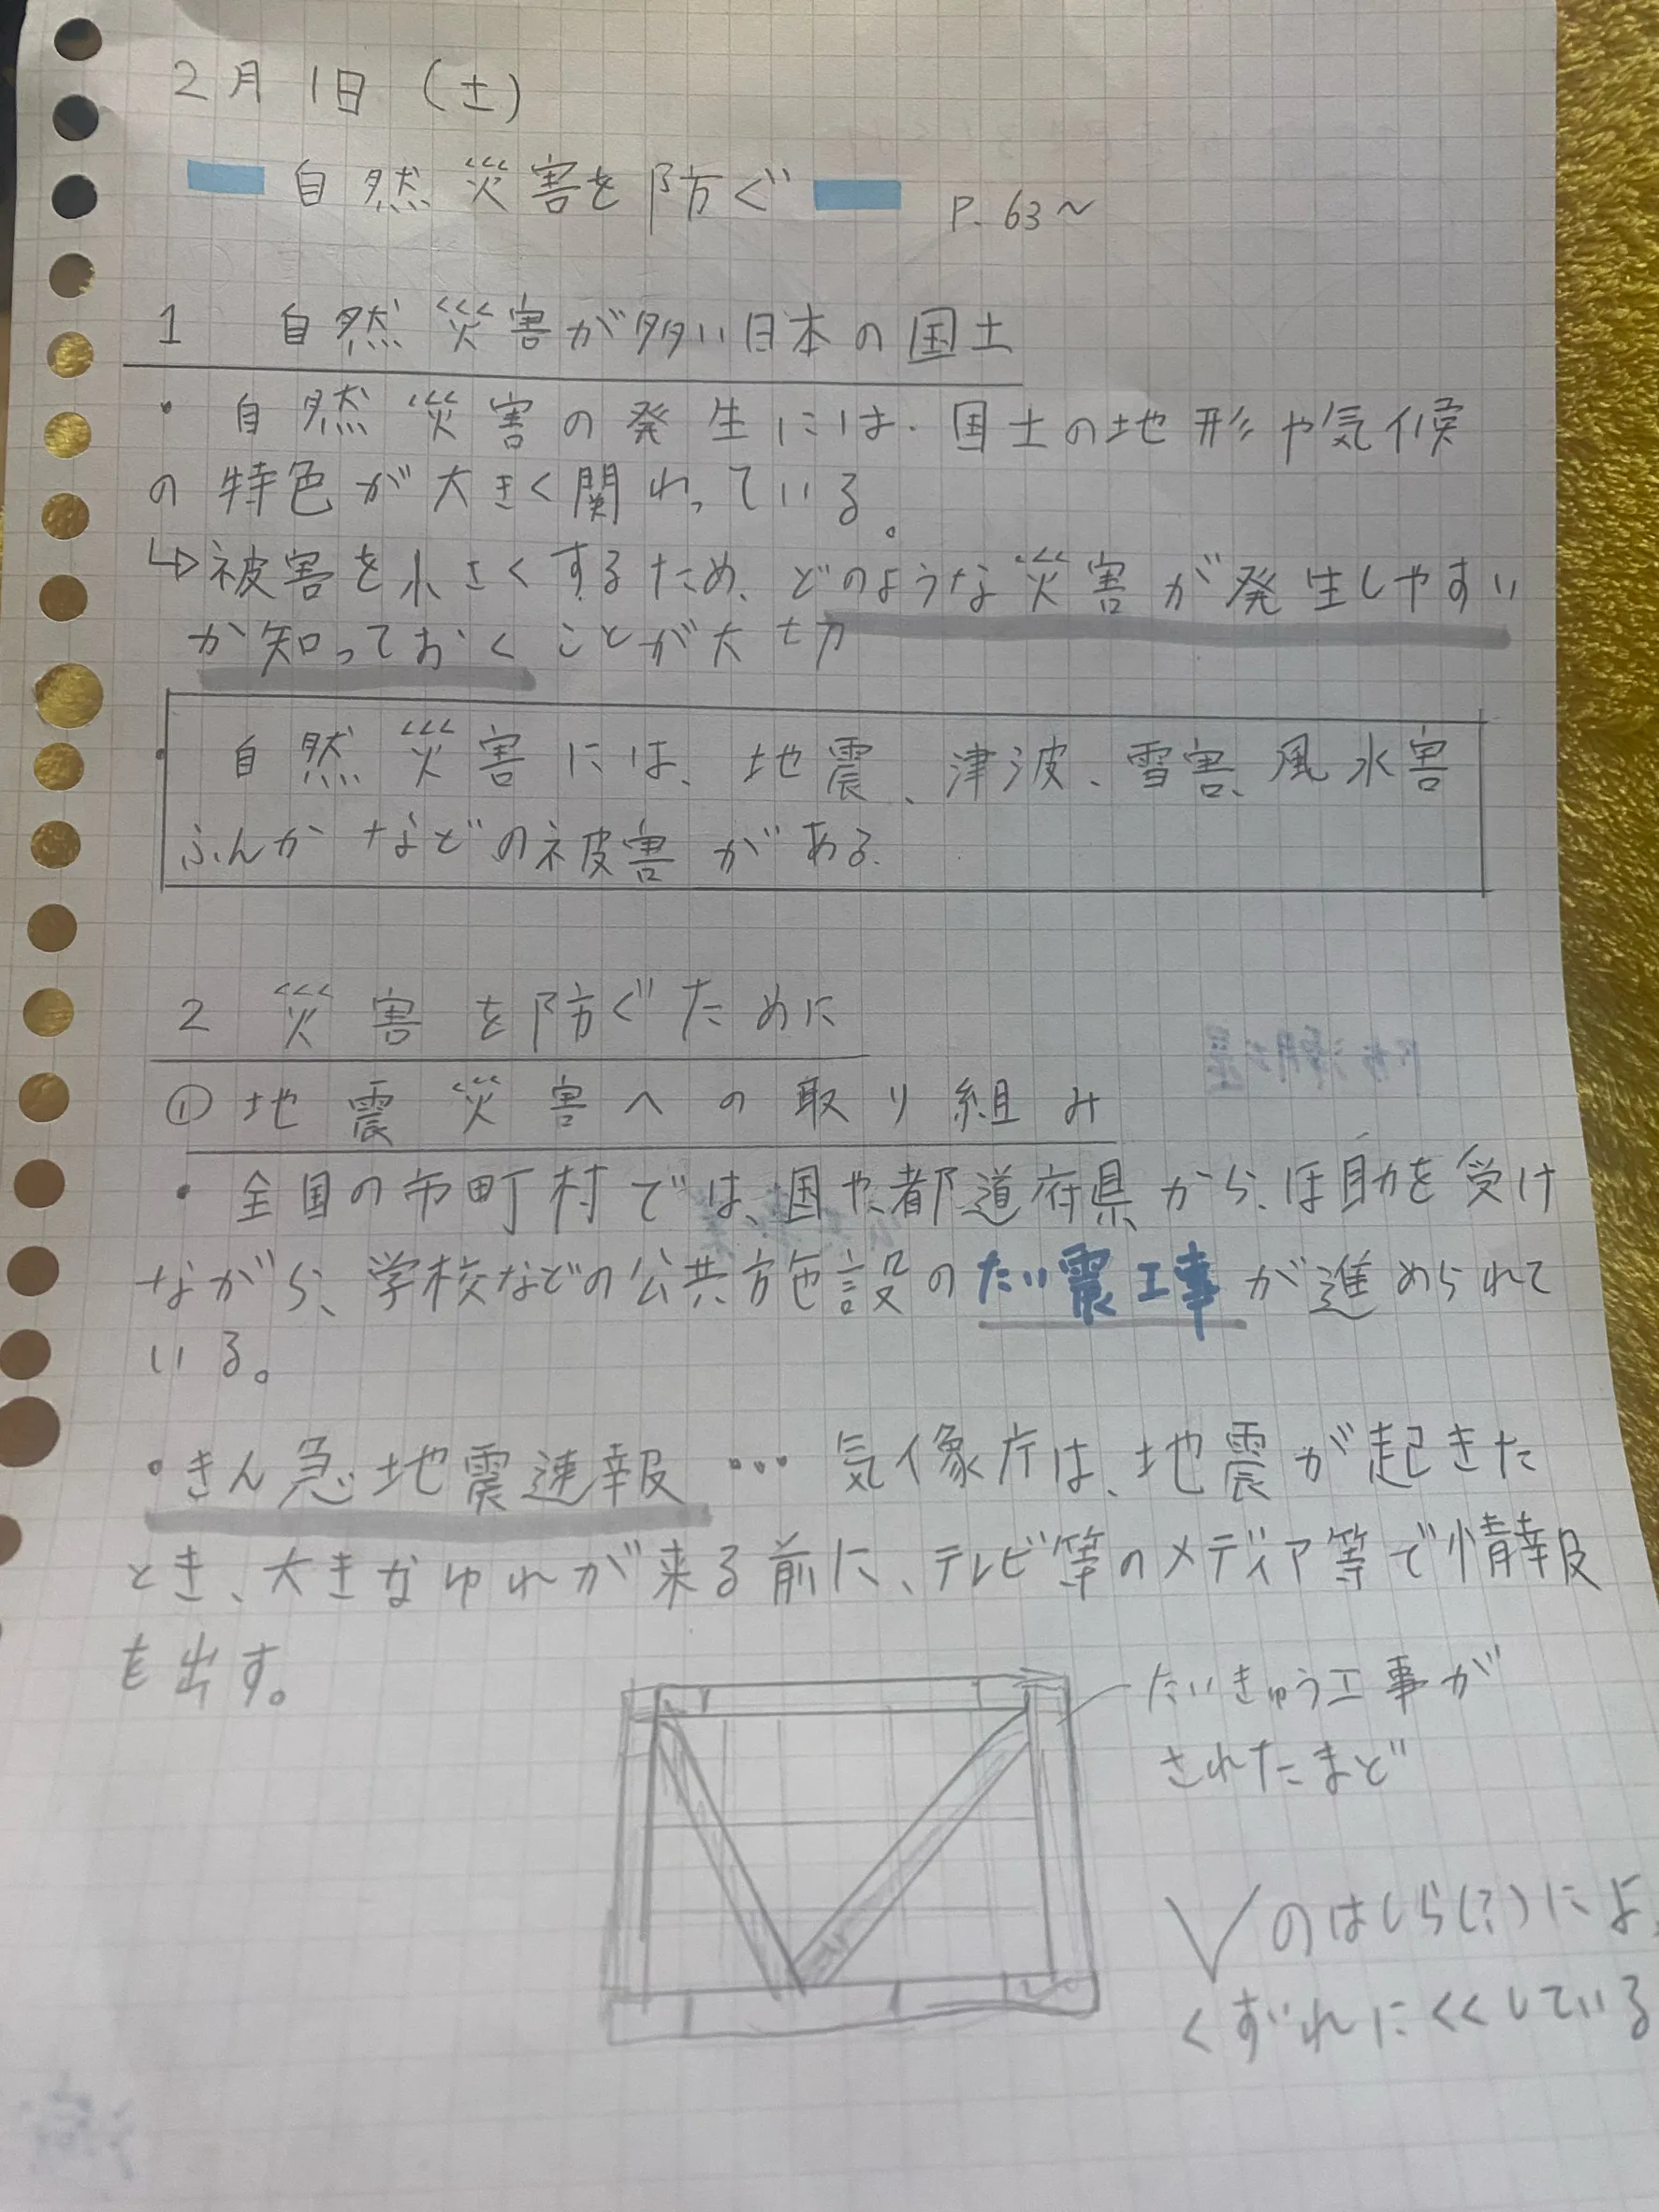 2月1日(土)
自然災害を防ぐ P.63~
1 自然災害が多い日本の国土
・自然災害の発生には、国土の地形や気候
の特色が大きく関わっている。
↳被害を小さくするため、どのような災害が発生しやすい
か知っておくことが大切
・自然災害には、地震、津波、雪害、風水害
ふんかなどの被害がある。
2 災害を防ぐために
① 地震災害への取り組み
・全国の市町村では、国や都道府県から、ほ助を受け
ながら、学校などの公共施設のたい震工事が進められて
いる。
・きん急地震速報 … 気像庁は、地震が起きた
とき、大きなゆれが来る前に、テレビ等のメディア等で情報
を出す。
たいきゅう工事が
されたまど
Vのはしら(?)によ
くずれにくくしている